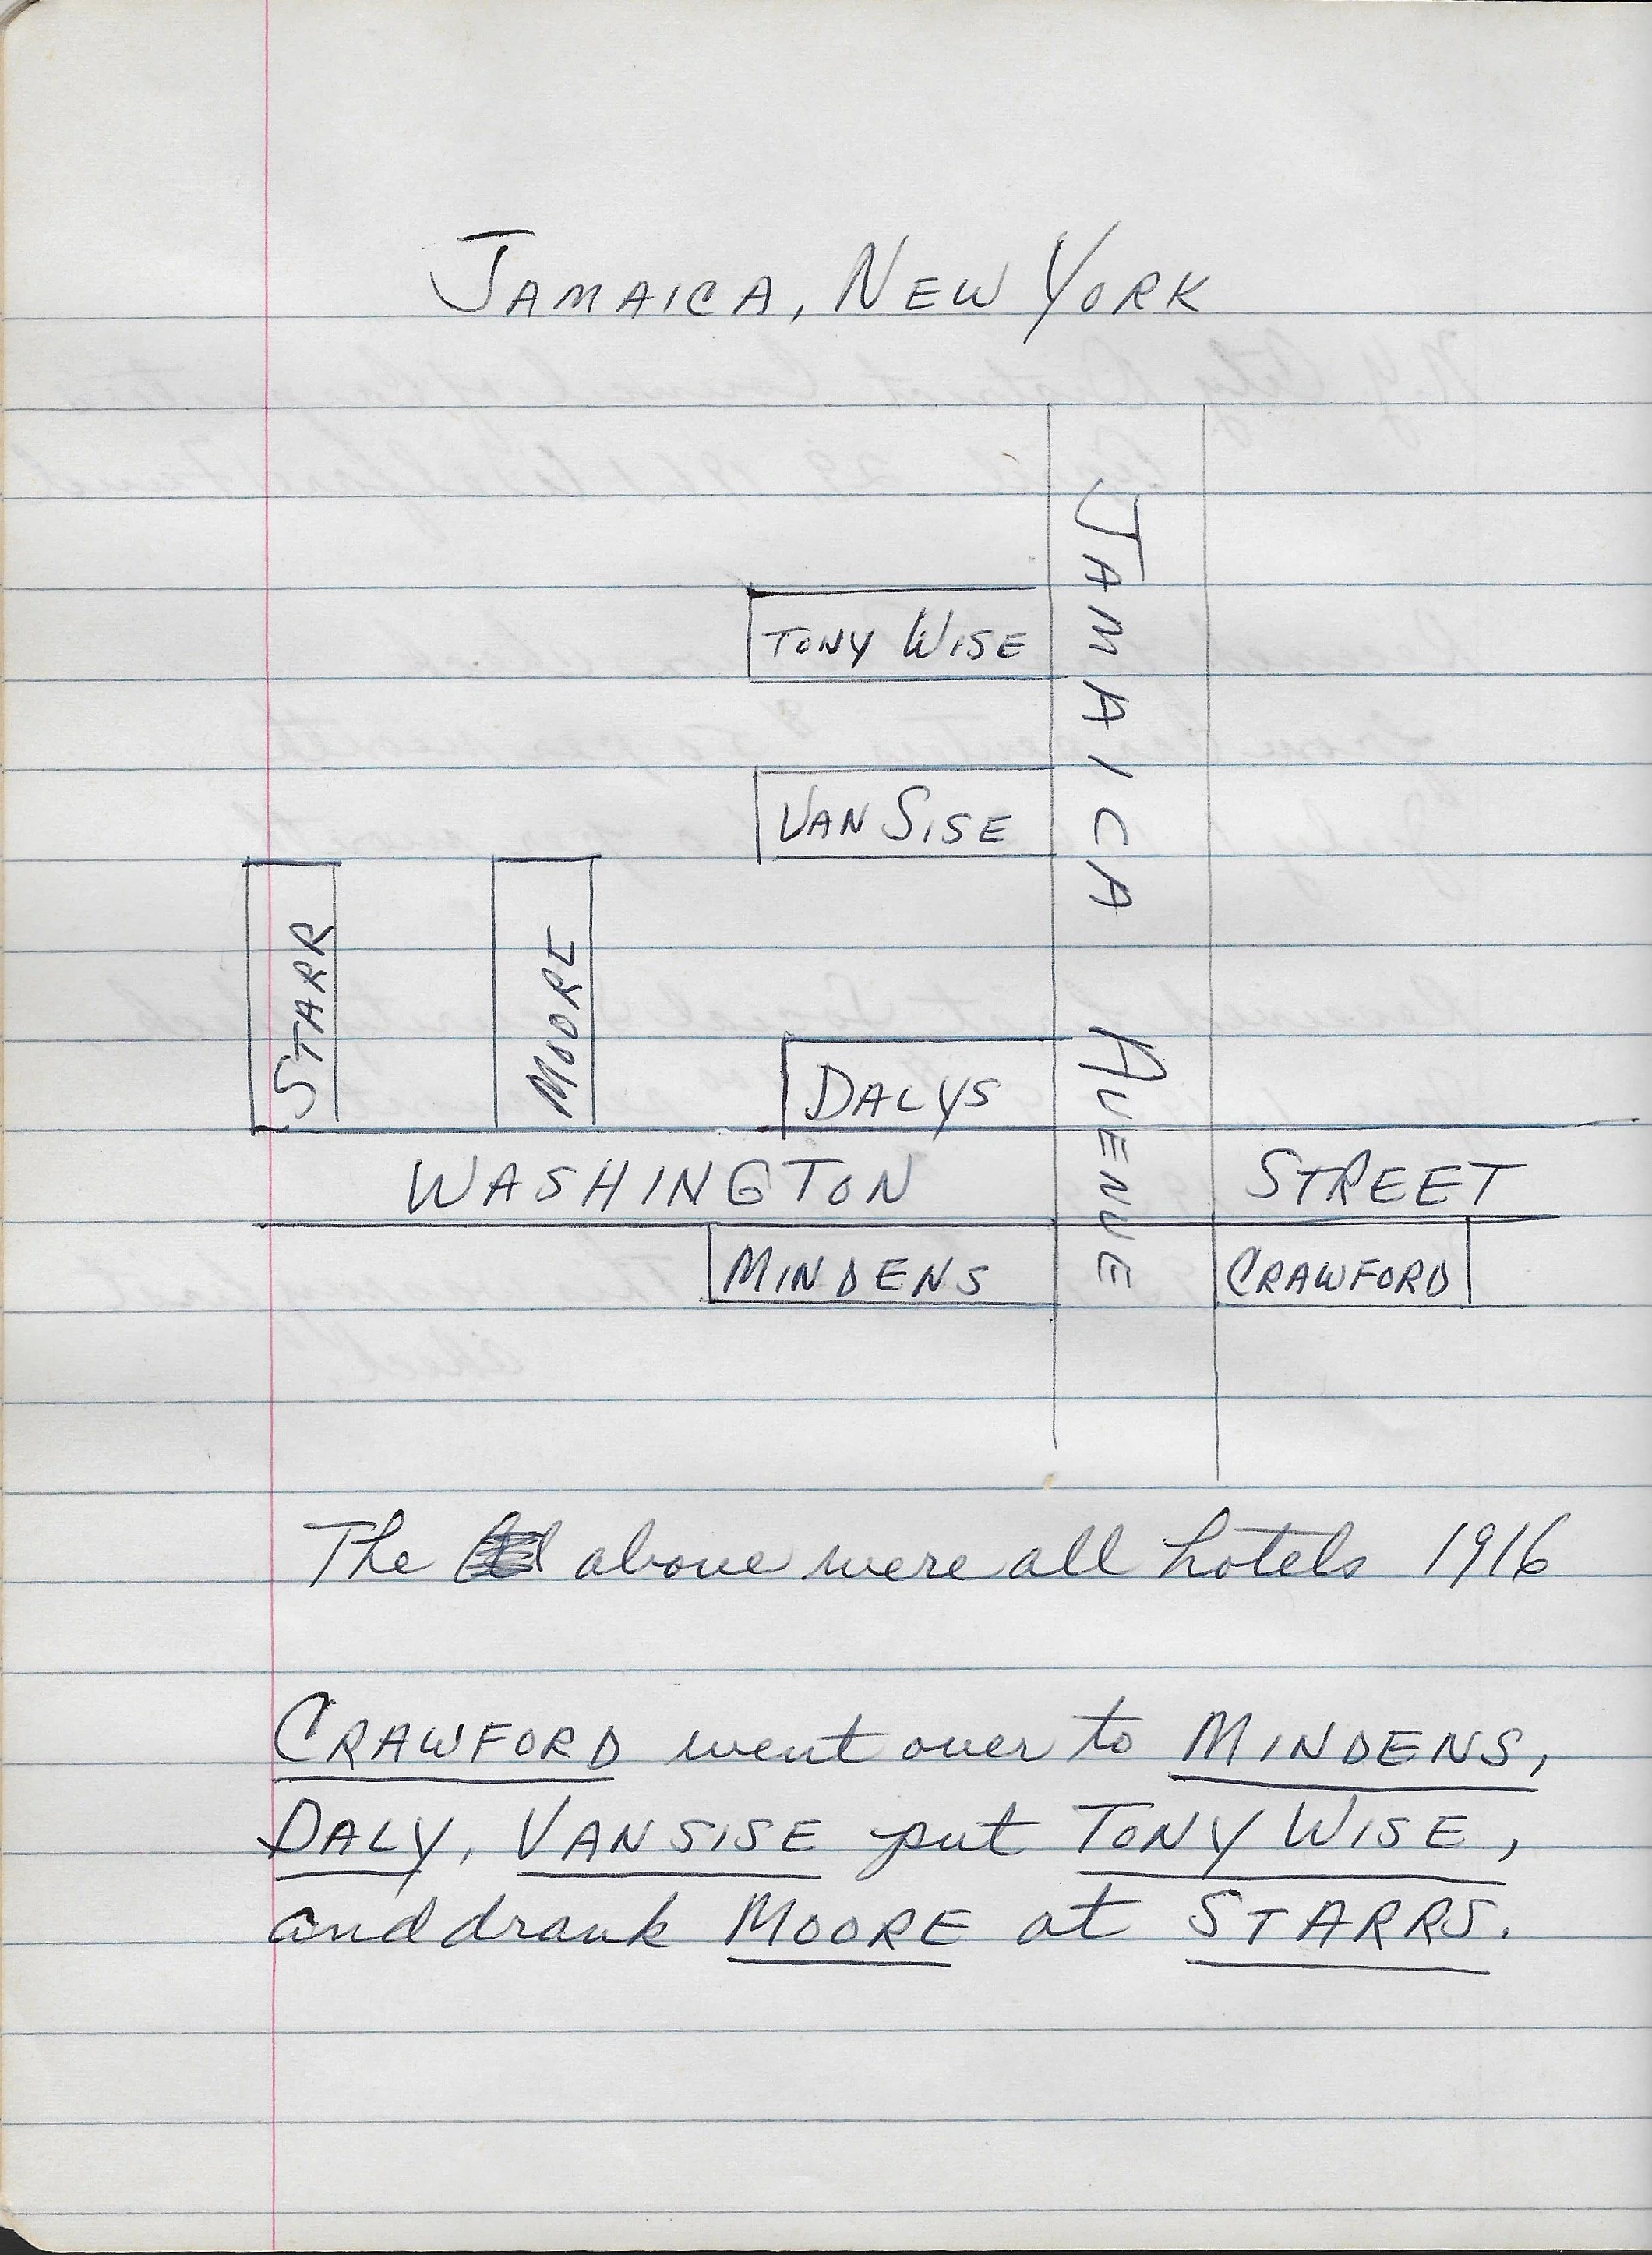 JAMAICA, NEW YORK
JAMAICA AVENUE
TONY WISE
VAN SISE
STARR
MOORE
DALYS
WASHINGTON STREET
MINDENS
CRAWFORD
The above were all hotels 1916
CRAWFORD went over to MINDENS,
DALY, VANSISE put TONY WISE,
and drank MOORE at STARRS.